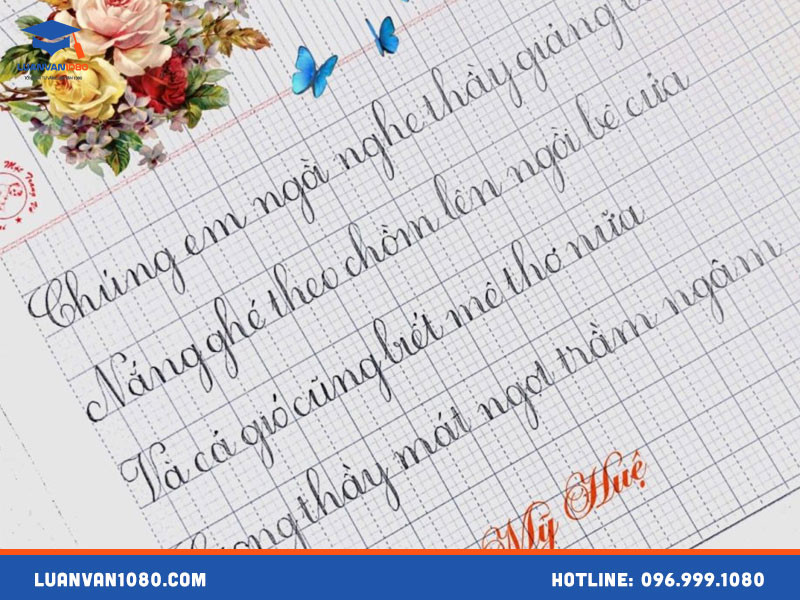 LUANVAN1080
Chúng em ngồi nghe thầy giảng
Nắng ghé theo chồm lên ngồi bê cửa
Và cả gió cũng biết mê thơ nữa
thầy mát ngọt trầm ngâm
Mỹ Huệ
LUANVAN1080.COM
HOTLINE: 096.999.1080